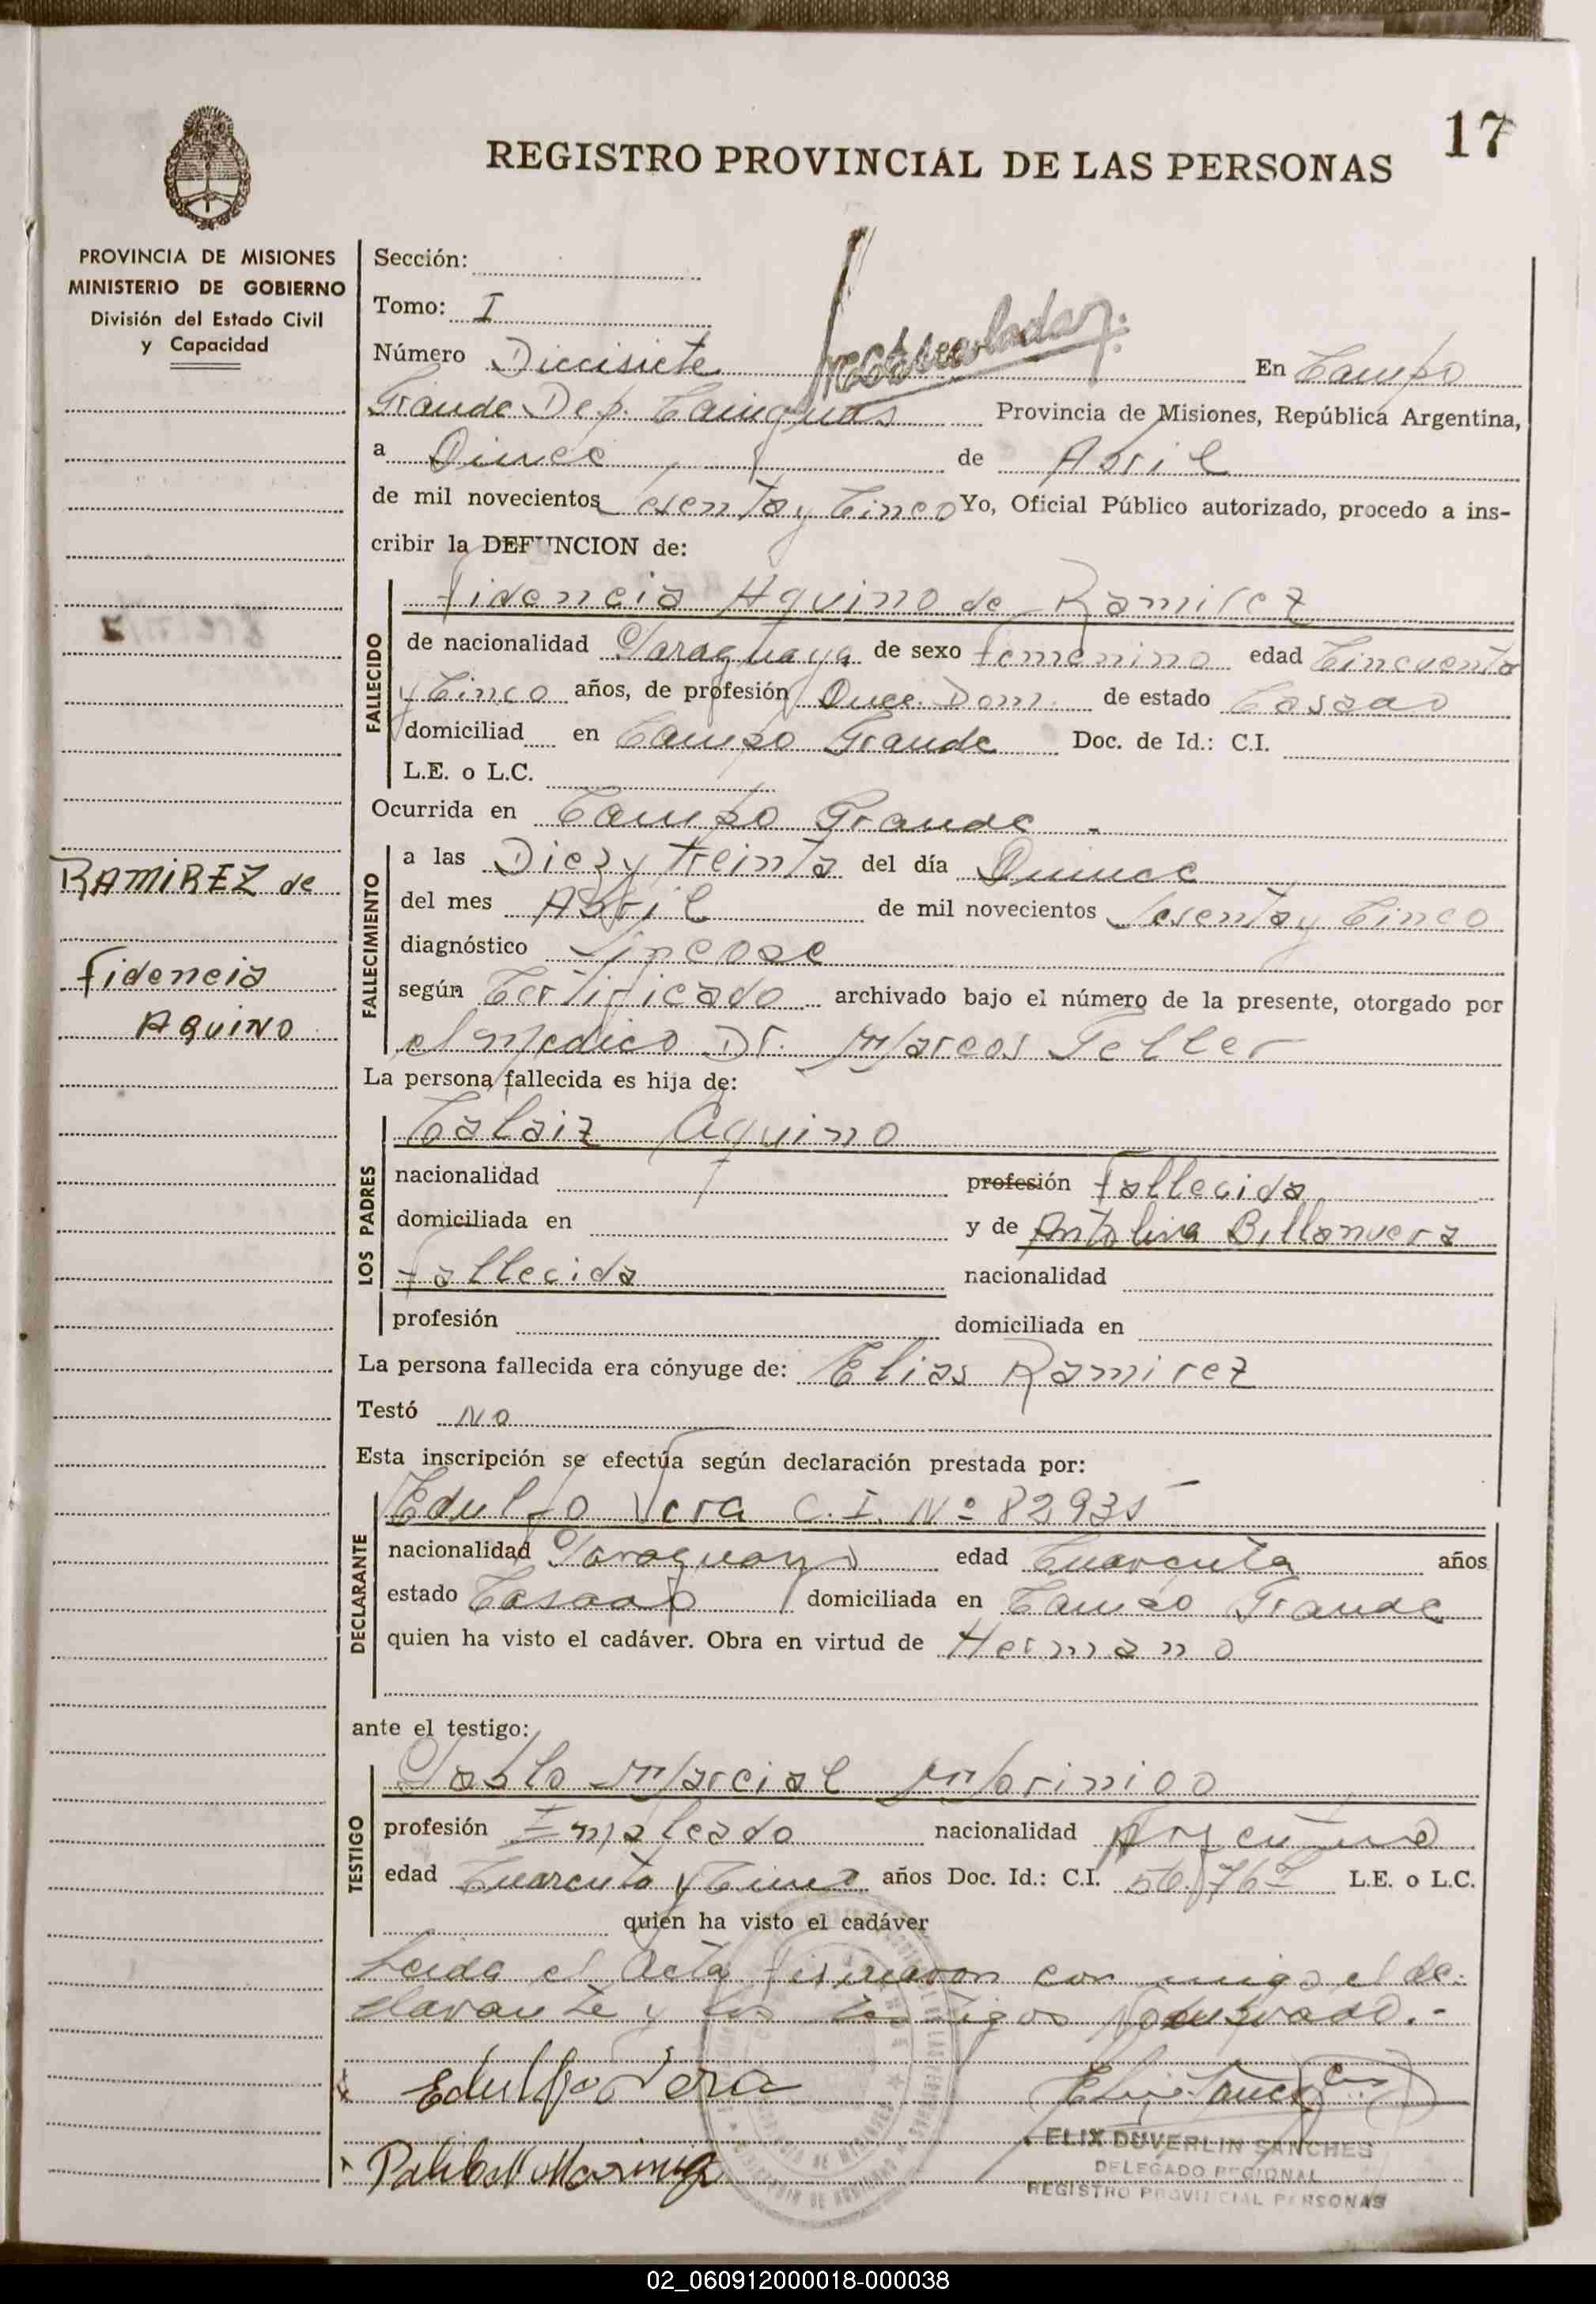 17
REGISTRO PROVINCIAL DE LAS PERSONAS
PROVINCIA DE MISIONES
MINISTERIO DE GOBIERNO
División del Estado Civil
y Capacidad
Sección:
Tomo: I
Número Diecisiete En Campo
Grande Dep. Cainguas Provincia de Misiones, República Argentina,
a Quince de Abril
de mil novecientos sesenta y Cinco Yo, Oficial Público autorizado, procedo a ins-
cribir la DEFUNCION de:
FALLECIDO
Fidencia Aquino de Ramirez
de nacionalidad Paraguaya de sexo femenino edad Cincuenta
y Cinco años, de profesión Quee. Dom. de estado Casado
domiciliad en Campo Grande Doc. de Id.: C.I.
L.E. o L.C.
Ocurrida en Campo Grande .
RAMIREZ de
Fidencia
AQUINO
FALLECIMIENTO
a las Diez y treinta del día Quince
del mes Abril de mil novecientos sesenta y Cinco
diagnóstico Sincose
según Certificado archivado bajo el número de la presente, otorgado por
el medico Dr. Marcos Teller
La persona fallecida es hija de:
LOS PADRES
Calaiz Aquino
nacionalidad profesión fallecida
domiciliada en y de Antolina Billanuera
fallecida nacionalidad
profesión domiciliada en
La persona fallecida era cónyuge de: Elias Ramirez
Testó No
Esta inscripción se efectúa según declaración prestada por:
DECLARANTE
Edulfo Vera C.I. Nº 82935
nacionalidad Paraguayo edad Cuarenta años
estado Casado domiciliada en Campo Grande
quien ha visto el cadáver. Obra en virtud de Hermano
ante el testigo:
TESTIGO
Pablo Marcial Morinigo
profesión Empleado nacionalidad Argentino
edad Cuarenta y Cinco años Doc. Id.: C.I. L.E. o L.C.
quien ha visto el cadáver
Leida el Acta firmaron con migo el de-
clarante y los testigos nombrado.-
Edulfo Vera
Pablo M Morinigo
ELIX DUVERLIN SANCHES
DELEGADO REGIONAL
REGISTRO PROVINCIAL PERSONAS
02_060912000018-000038